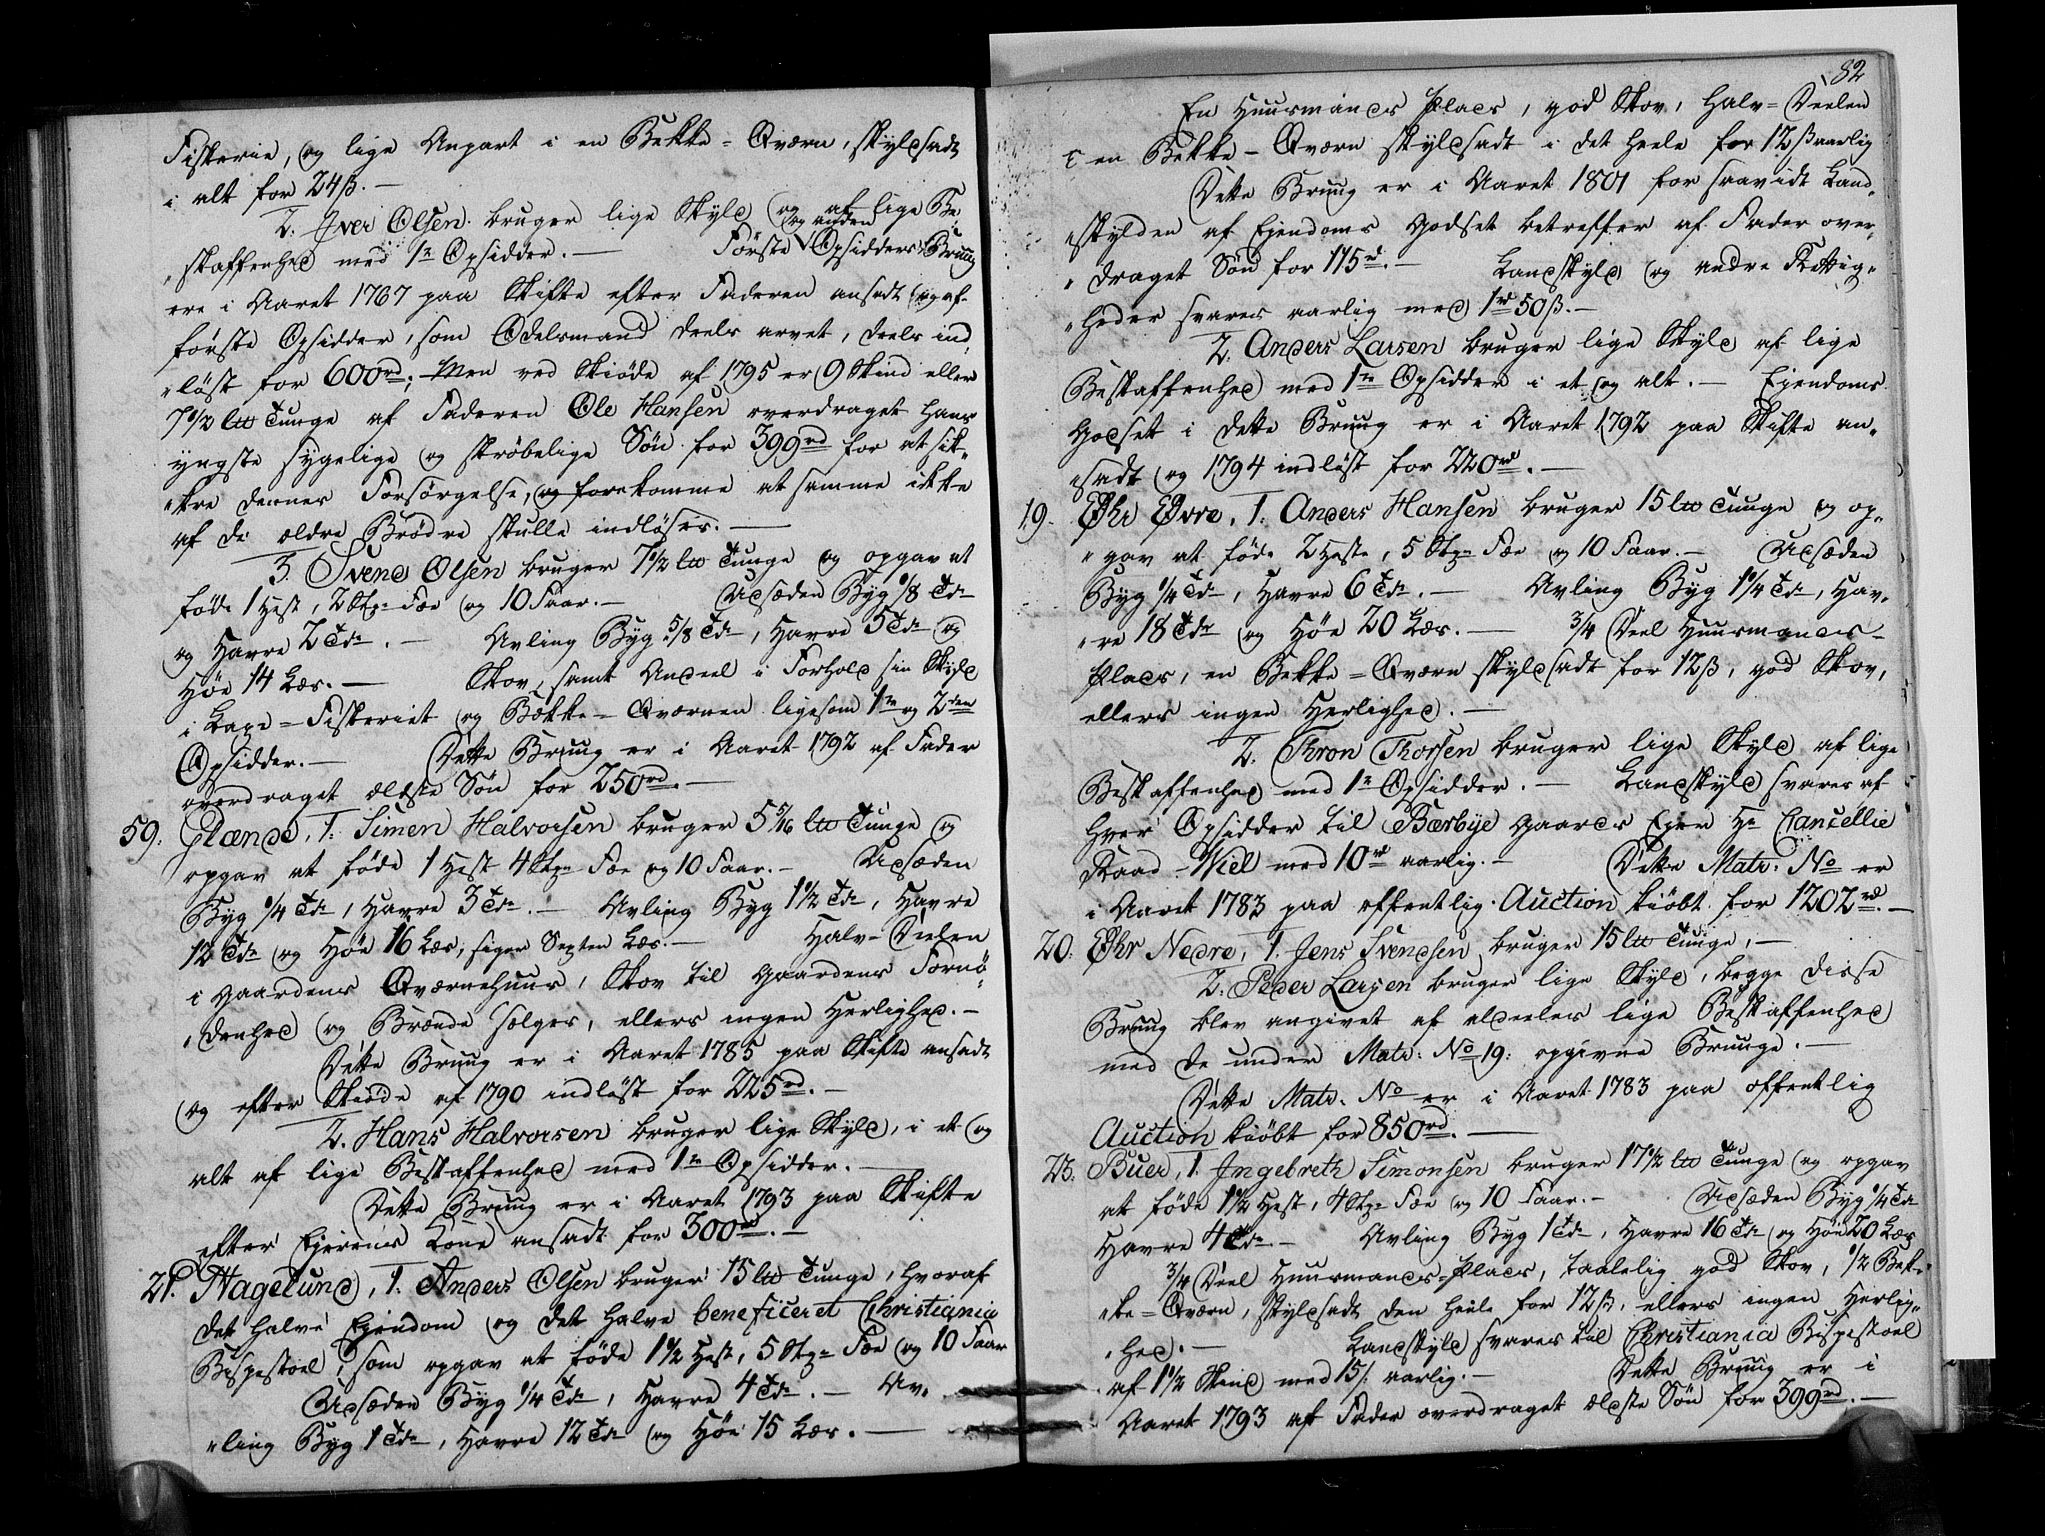 Fiskerie, og lige Anpart i en Bekke-Qværn, skyldsadt
i alt for 24 ß. —
2. Iver Olsen bruger lige Skyld og af lige Be
„skaffenhed med 1e Opsidder. — Første og anden Opsidders Bruug
ere i Aaret 1767 paa Skifte efter Faderen ansadt og af
første Opsidder, som Odelsmand deels arvet, deels ind„
„løst for 600rd; Men ved Skiøde af 1795 er 9 Skind eller
7 1/2 lb Tunge af Faderen Ole Hansen overdraget hans
yngste sygelige og skrøbelige Søn for 399rd for at sik„
„kre dennes Forsørgelse, og forekomme at samme ikke
af de ældre Brødre skulle indløses. —
3. Svend Olsen bruger 7 1/2 lb Tunge og opgav at
føde 1 Hest, 2 Stkr Fæ og 10 Faar. — Udsæden Byg 1/8 Tde
og Havre 2 Tdr. — Avling Byg 5/8 Tde, Havre 5 Tdr og
Høe 14 Læs. — Skov, samt Andeel i Forhold sin Skyld
i Laxe-Fiskeriet og Bekke-Qværnen ligesom 1te og 2den
Opsidder. — Dette Bruug er i Aaret 1792 af Fader
overdraget ældste Søn for 250rd. —
59. Glænde, 1. Simen Halvorsen bruger 5 5/16 lb Tunge og
opgav at føde 1 Hest 4 Stkr Fæ og 10 Faar. — Udsæden
Byg 1/4 Tde, Havre 3 Tdr. — Avling Byg 1 1/2 Tde, Havre
12 Tdr og Høe 16 Læs, siger Sexten Læs. — Halv-Deelen
i Gaardens Qværnehuus, Skov til Gaardens Fornø„
„denhed og Brænde sælges, ellers ingen Herlighed. —
Dette Bruug er i Aaret 1785 paa Skifte ansadt
og efter Skiøde af 1790 indløst for 225rd. —
2. Hans Halvorsen bruger lige Skyld, i et og
alt af lige Beskaffenhed med 1te Opsidder. —
Dette Bruug er i Aaret 1793 paa Skifte
efter Ejerens Kone ansadt for 300rd. —
21. Hagelund, 1. Anders Olsen bruger 15 lb Tunge, hvoraf
det halve Ejendom og det halve beneficeret Christiania
Bispestoel, som opgav at føde 1 1/2 Hest, 5 Stkr Fæ og 10 Faar
Udsæden Byg 1/4 Tde, Havre 4 Tdr. — Av„
„ling Byg 1 Tde, Havre 12 Tdr og Høe 15 Læs. —
82
En Huusmands Plads, god Skov, Halv-Deelen
i en Bekke-Qværn skyldsadt i det heele for 12 ß aarlig
Dette Bruug er i Aaret 1801 for saavidt Land„
„skylden af Ejendoms Godset betreffer af Fader over„
„draget Søn for 115rd. — Landskyld og andre Rettig„
„heder svares aarlig med 1rd 50 ß. —
2. Anders Larsen bruger lige Skyld af lige
Beskaffenhed med 1te Opsidder i et og alt. — Ejendoms
Godset i dette Bruug er i Aaret 1792 paa Skifte an„
„sadt og 1794 indløst for 220rd. —
19. Øhr Øvre, 1. Anders Hansen bruger 15 lb Tunge og op„
„gav at føde 2 Heste, 5 Stkr Fæ og 10 Faar. — Udsæden
Byg 1/4 Tde, Havre 6 Tdr. — Avling Byg 1 1/4 Tde, Hav„
„re 18 Tdr og Høe 20 Læs. — 3/4 Deel Huusmands-
Plads, en Bekke-Qværn skyldsadt for 12 ß, god Skov,
ellers ingen Herlighed. —
2. Thron Thorsen bruger lige Skyld af lige
Beskaffenhed med 1te Opsidder. — Landskyld svares af
hver Opsidder til Bærbye Gaards Ejer Hr Cancellie
Raad Wiel med 10rd aarlig. — Dette Matr: No er
i Aaret 1783 paa offentlig Auction kiøbt for 1202rd. —
20. Øhr Nedre, 1. Jens Svendsen bruger 15 lb Tunge, —
2. Peder Larsen bruger lige Skyld, begge disse
Bruug blev angivet af aldeeles lige Beskaffenhed
med de under Matr: No 19: opgivne Bruuge. —
Dette Matr. No er i Aaret 1783 paa offentlig
Auction kiøbt for 850rd. —
23. Buer, 1. Ingebreth Simonsen bruger 17 1/2 lb Tunge og opgav
at føde 1 1/2 Hest, 4 Stkr Fæ og 10 Faar. — Udsæden Byg 1/4 Tde
Havre 4 Tdr. — Avling Byg 1 Tde, Havre 16 Tdr og Høe 20 Læs
3/4 Deel Huusmands-Plads, taalelig god Skov, 1/2 Bek„
„ke-Qværn, skyldsadt den heele for 12 ß, ellers ingen Herlig„
„hed. — Landskyld svares til Christiania Bispestoel
af 1 1/2 Skind med 15 ß aarlig. — Dette Bruug er i
Aaret 1793 af Fader overdraget ældste Søn for 399rd. —